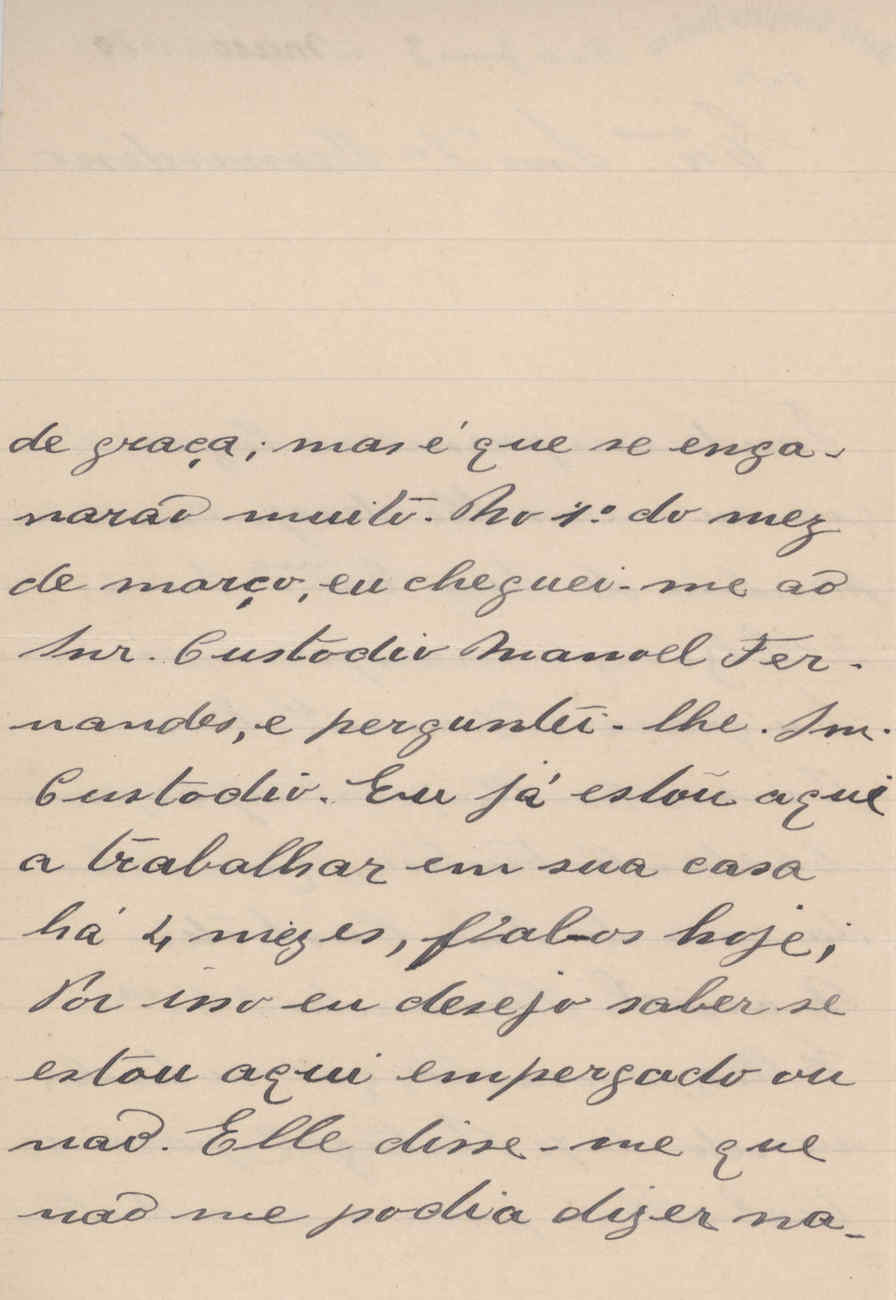 de graça; mas é que se enga-
narão muito. No 1º do mez
de março, eu cheguei-me ao
Snr. Custodio Manoel Fer-
nandes, e perguntei-lhe. Snr.
Custodio. Eu já estou aqui
a trabalhar em sua casa
há 4 mezes, fal-os hoje;
Por isso eu desejo saber se
estou aqui empergado ou
não. Elle disse-me que
não me podia dizer na-